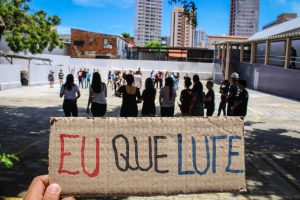 EU QUE LUTE